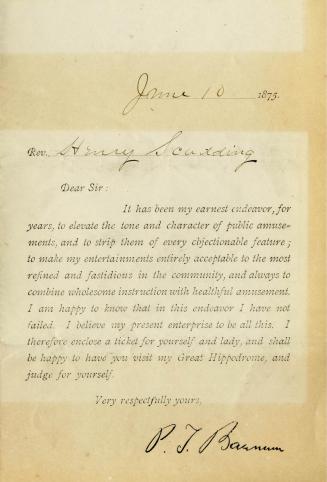 June 10 1875.
Rev. Henry Scadding
Dear Sir:
It has been my earnest endeavor, for
years, to elevate the tone and character of public amuse-
ments, and to strip them of every objectionable feature;
to make my entertainments entirely acceptable to the most
refined and fastidious in the community, and always to
combine wholesome instruction with healthful amusement.
I am happy to know that in this endeavor I have not
failed. I believe my present enterprise to be all this. I
therefore enclose a ticket for yourself and lady, and shall
be happy to have you visit my Great Hippodrome, and
judge for yourself.
Very respectfully yours,
P. T. Barnum